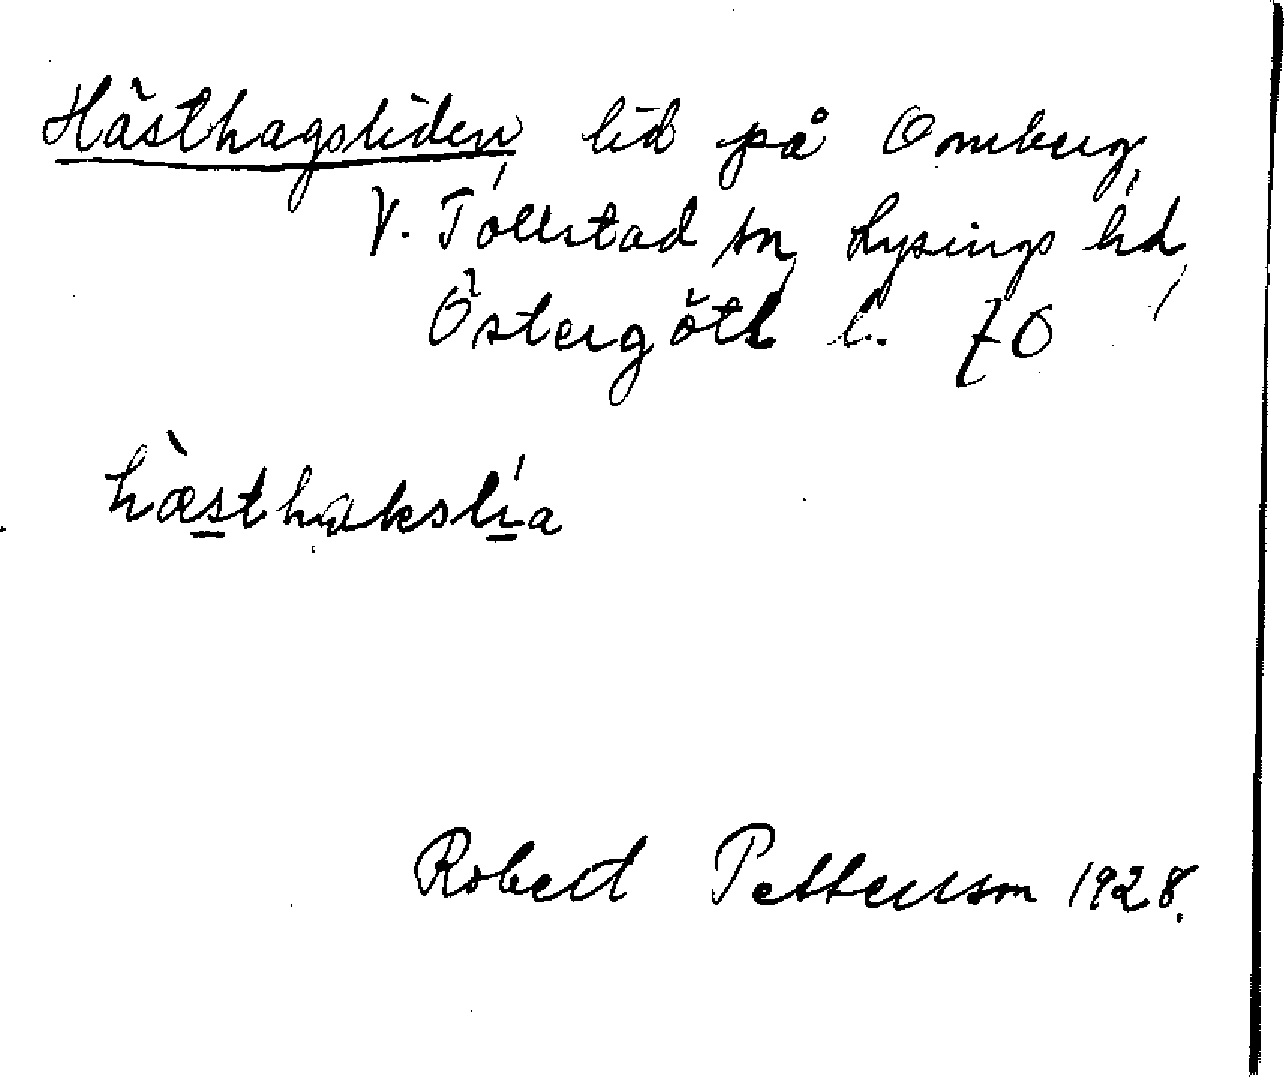 Hästhagsliden, lid på Omberg,
V. Tollstad sn, Lysings hd,
Östergötl l. 70
hàsthakslía
Robert Petterson 1928.